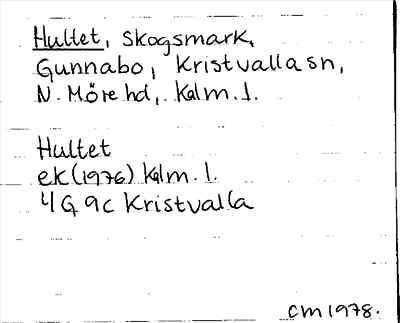 Hultet, Skogsmark,
Gunnabo, Kristvalla sn,
N. Möre hd, Kalm. l.
Hultet
ek (1976) Kalm. l.
4 G 9c Kristvalla
CM 1978.